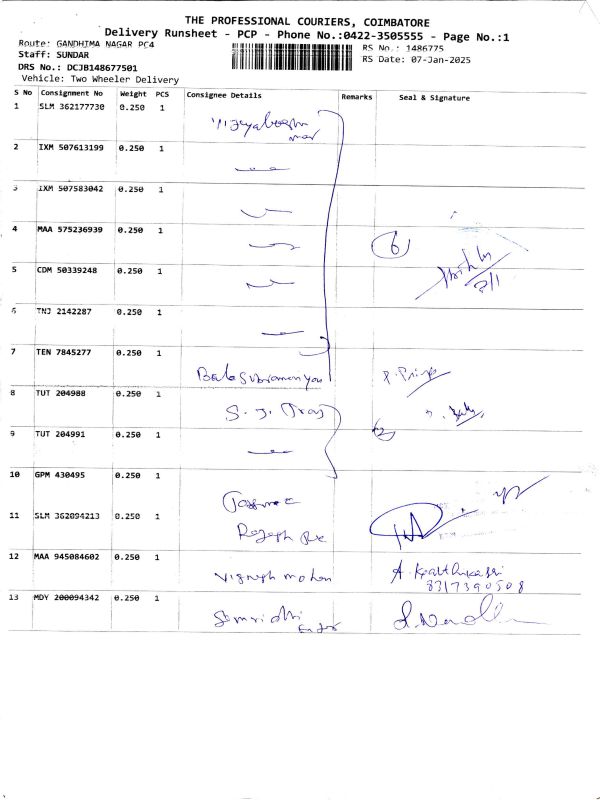 THE PROFESSIONAL COURIERS, COIMBATORE
Delivery Runsheet - PCP - Phone No.:0422-3505555 - Page No.:1
Route: GANDHIMA NAGAR PC4
RS No.: 1486775
Staff: SUNDAR
RS Date: 07-Jan-2025
DRS No.: DCJB148677501
Vehicle: Two Wheeler Delivery
S No Consignment No Weight PCS Consignee Details Remarks Seal & Signature
1 SLM 362177730 0.250 1
2 IXM 507613199 0.250 1
3 IXM 507583042 0.250 1
4 MAA 575236939 0.250 1
6
5 CDM 50339248 0.250 1
6 TNJ 2142287 0.250 1
7 TEN 7845277 0.250 1
Balasubramanyan
8 TUT 204988 0.250 1
9 TUT 204991 0.250 1
2
10 GPM 430495 0.250 1
11 SLM 362094213 0.250 1
Rajesh
12 MAA 945084602 0.250 1
Vignesh mohan
8317390508
13 MDY 200094342 0.250 1